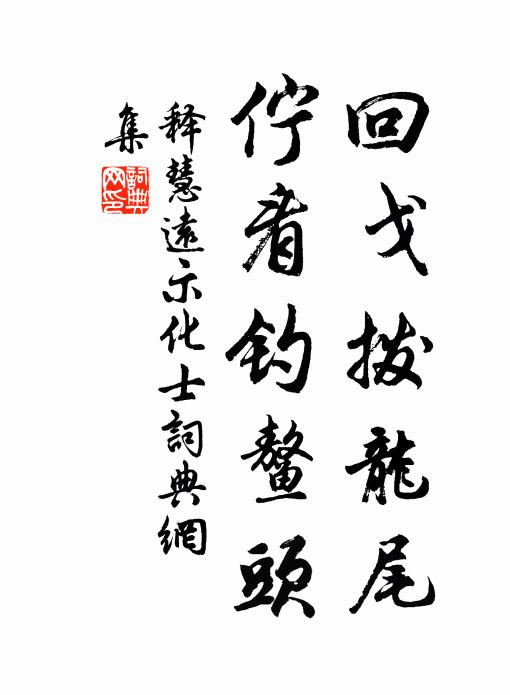 回戈拨龍尾
佇看釣鳌頭
释慧遠示化士詞典網
集
詞典
网印